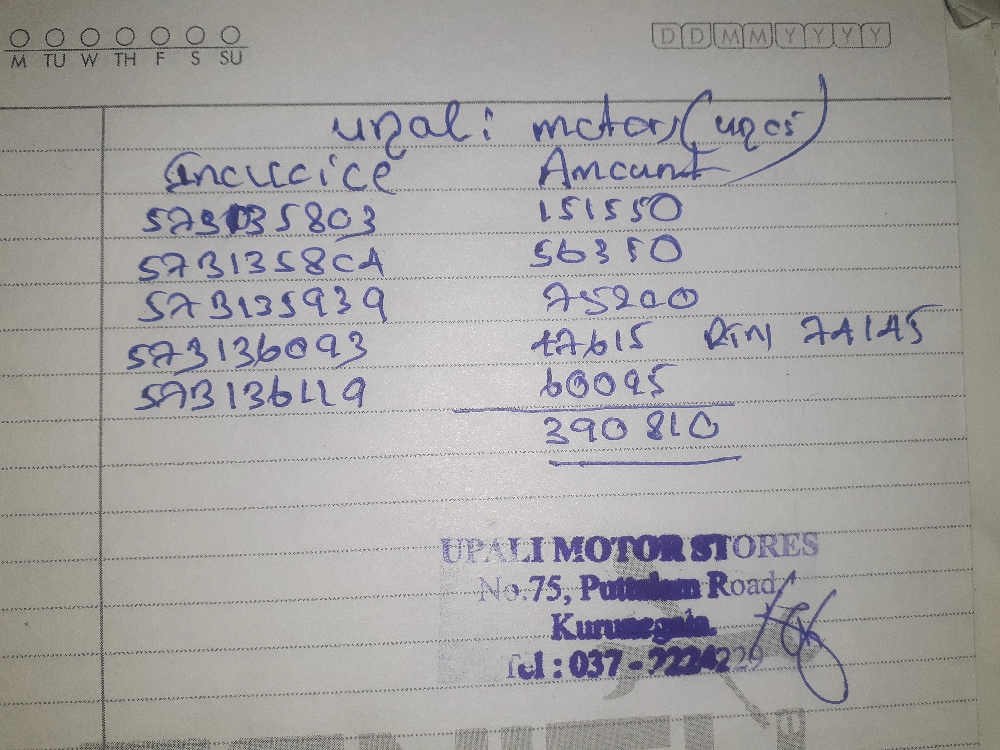 M TU W TH F S SU
D D M M Y Y Y Y
upali motors (upos)
Invoice Amount
573135803 151550
573135804 56350
573135939 75200
573136093 47615 RTN 74145
573136119 60095
390 810
UPALI MOTOR STORES
No.75, Puttalam Road
Kurunegala.
Tel : 037 - 2224229